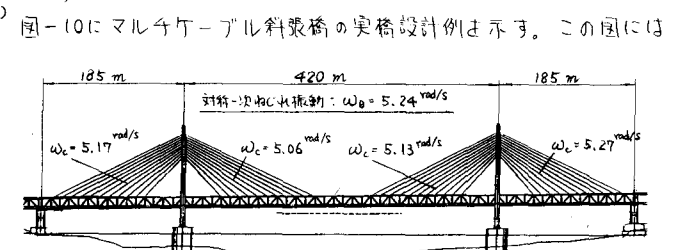 ) 図-10にマルチケーブル斜張橋の実橋設計例を示す。この図には
185 m 420 m 185 m
対称一次ねじれ振動：ωθ = 5.24 rad/s
ωc = 5.17 rad/s ωc = 5.06 rad/s ωc = 5.13 rad/s ωc = 5.27 rad/s